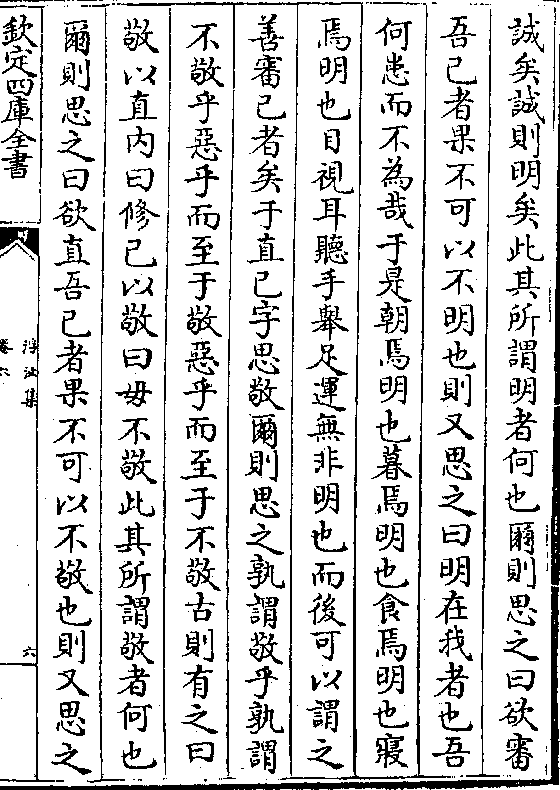 誠矣誠則明矣此其所謂明者何也爾則思之曰欲審
吾己者果不可以不明也則又思之曰明在我者也吾
何患而不為哉于是朝焉明也暮焉明也食焉明也寢
焉明也目視耳聽手舉足運無非明也而後可以謂之
善審己者矣于直己字思敬爾則思之孰謂敬乎孰謂
不敬乎惡乎而至于敬惡乎而至于不敬古則有之曰
敬以直内曰修己以敬曰毋不敬此其所謂敬者何也
爾則思之曰欲直吾己者果不可以不敬也則又思之
欽定四庫全書
浮沚集
卷六
六